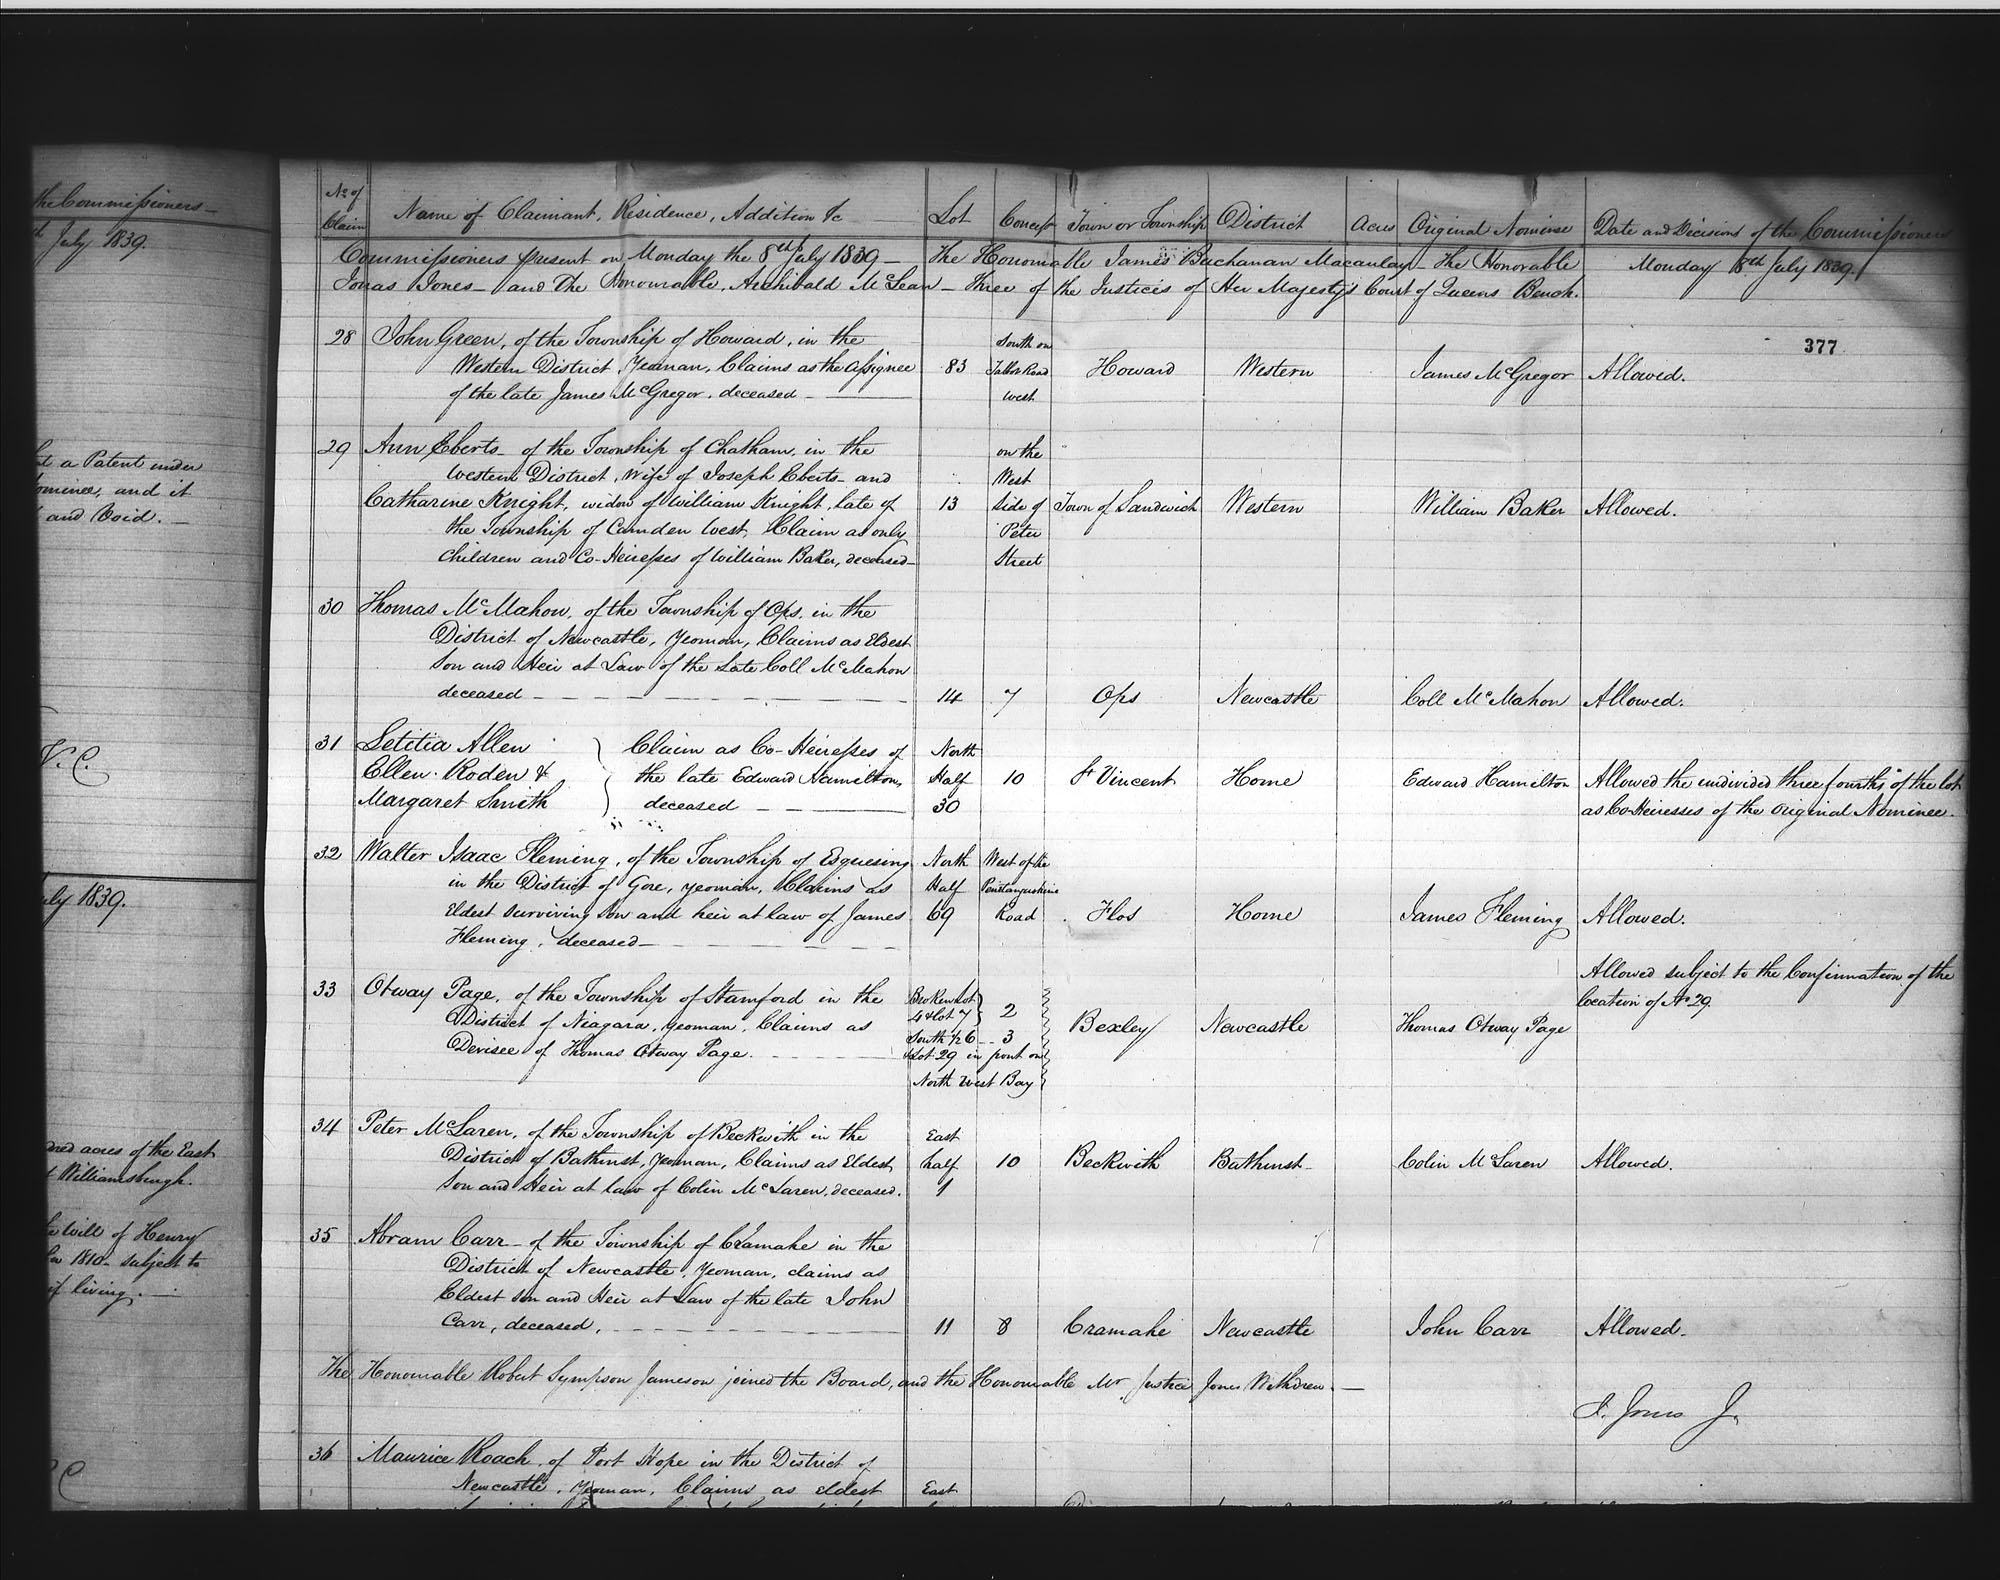 the Commissioners
July 1839.
a Patent under
ominee, and it
and Void.
V. C.
uly 1839.
dred acres of the East
Williamsburgh.
will of Henry
1810 subject to
if living.
C
No. of Claim
Name of Claimant, Residence, Addition &c
Lot
Concess.
Town or Township
District
Acres
Original Nominee
Date and Decisions of the Commissioners
Commissioners present on Monday the 8th July 1839 – The Honorable James Buchanan Macaulay – The Honorable
Monday 8th July 1839.
Jonas Jones – and The Honourable Archibald McLean – Three of the Justices of Her Majesty's Court of Queens Bench.
377
28
John Green, of the Township of Howard, in the
Western District, Yeoman, Claims as the Assignee
of the late James McGregor, deceased –
83
South on
Talbot Road
West
Howard
Western
James McGregor
Allowed.
29
Ann Eberts – of the Township of Chatham, in the
Western District, Wife of Joseph Eberts – and
Catharine Knight, widow of William Knight, late of
the Township of Camden West, Claim as only
Children and Co-Heiresses of William Baker, deceased –
13
on the
West
Side of
Peter
Street
Town of Sandwich
Western
William Baker
Allowed.
30
Thomas McMahon, of the Township of Ops, in the
District of Newcastle, Yeoman, Claims as Eldest
Son and Heir at Law of the Late Coll McMahon
deceased –
14
7
Ops
Newcastle
Coll McMahon
Allowed.
31
Letitia Allen
Ellen Roden &
Margaret Smith
Claim as Co-Heiresses of
the late Edward Hamilton,
deceased –
North
Half
30
10
St Vincent
Home
Edward Hamilton
Allowed the undivided three fourths of the lot
as Co-Heiresses of the Original Nominee.
32
Walter Isaac Fleming, of the Township of Esquesing
in the District of Gore, yeoman, Claims as
Eldest surviving Son and heir at law of James
Fleming, deceased –
North
Half
69
West of the
Penetanguishine
Road
Flos
Home
James Fleming
Allowed.
33
Otway Page, of the Township of Stamford in the
District of Niagara, yeoman, Claims as
Devisee of Thomas Otway Page.
Broken Lot
4 & Lot 7
2
South ½ 6 – 3
Lot 29 in front on
North West Bay
Bexley
Newcastle
Thomas Otway Page
Allowed subject to the Confirmation of the
location of No 29
34
Peter McLaren, of the Township of Beckwith in the
District of Bathurst, Yeoman, Claims as Eldest
Son and Heir at law of Colin McLaren, deceased.
East
half
1
10
Beckwith
Bathurst
Colin McLaren
Allowed.
35
Abram Carr – of the Township of Cramahe in the
District of Newcastle, Yeoman, claims as
Eldest Son and Heir at Law of the late John
Carr, deceased,
11
8
Cramahe
Newcastle
John Carr
Allowed.
The Honourable Robert Sympson Jameson joined the Board, and the Honourable Mr Justice Jones Withdrew. –
J. Jones J.
36
Maurice Roach, of Port Hope in the District of
Newcastle, Yeoman, Claims as eldest
East